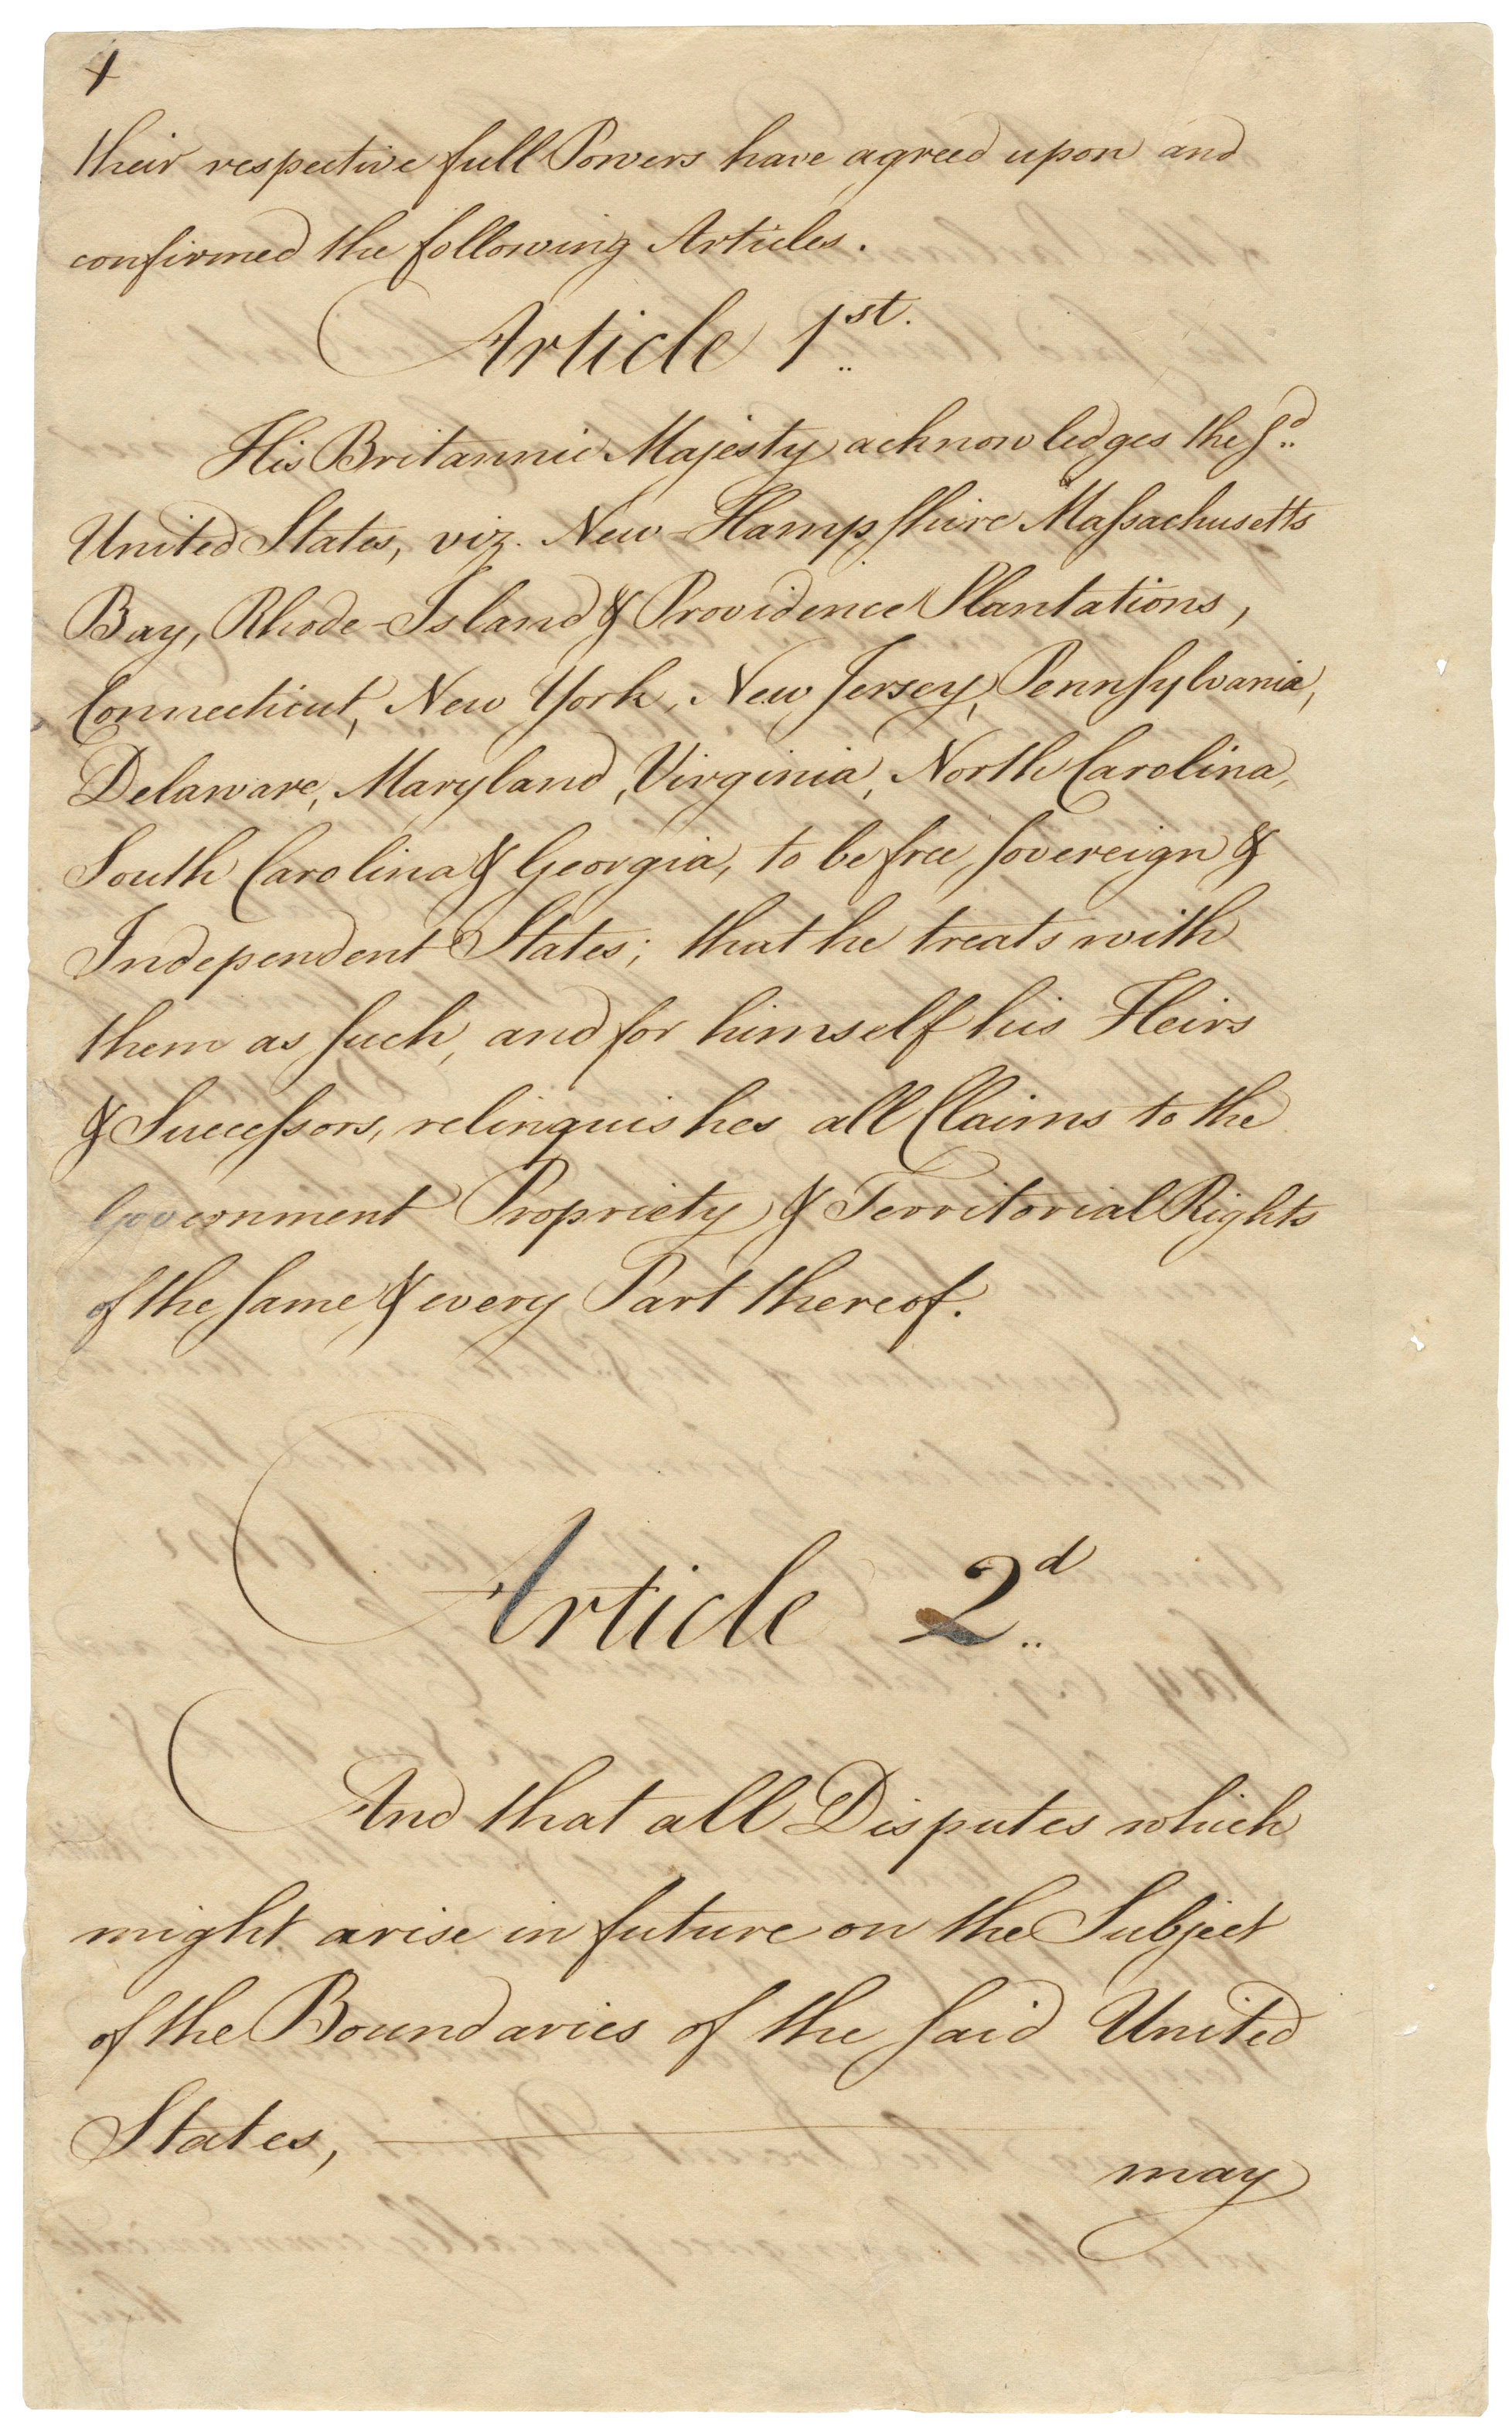 their respective full Powers have agreed upon and
confirmed the following Articles.
Article 1st.
His Britannic Majesty acknowledges the sd.
United States, viz. New-Hampshire Massachusetts
Bay, Rhode-Island & Providence Plantations,
Connecticut, New York, New Jersey, Pennsylvania,
Delaware, Maryland, Virginia, North Carolina,
South Carolina & Georgia, to be free sovereign &
Independent States; that he treats with
them as such, and for himself his Heirs
& Successors, relinquishes all Claims to the
Government Propriety & Territorial Rights
of the same & every Part thereof.
Article 2d
And that all Disputes which
might arise in future on the Subject
of the Boundaries of the said United
States,
may